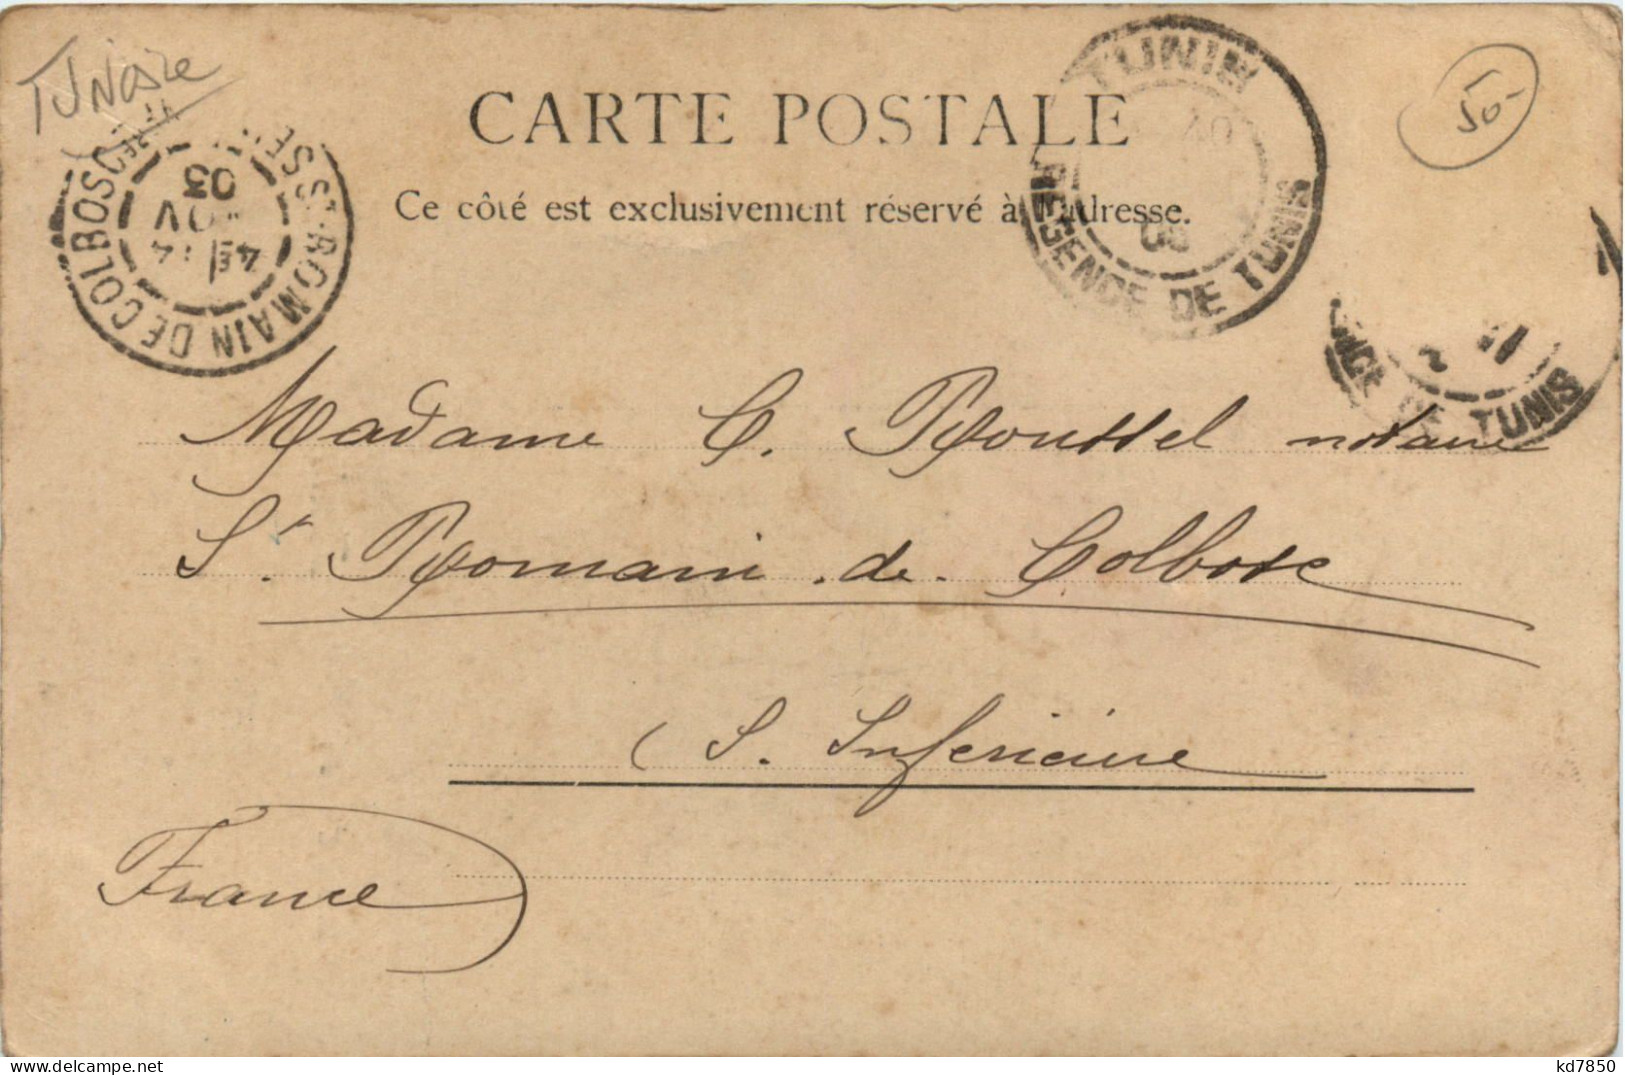 TUNISIE
50-
CARTE POSTALE
Ce côté est exclusivement réservé à l'adresse.
TUNIS
RÉGENCE DE TUNIS
ST-ROMAIN DE COLBOSC
4E
03
DE TUNIS
Madame C. Roussel notaire
St Romain de Colbosc
(S. Inférieure
France
kd7850